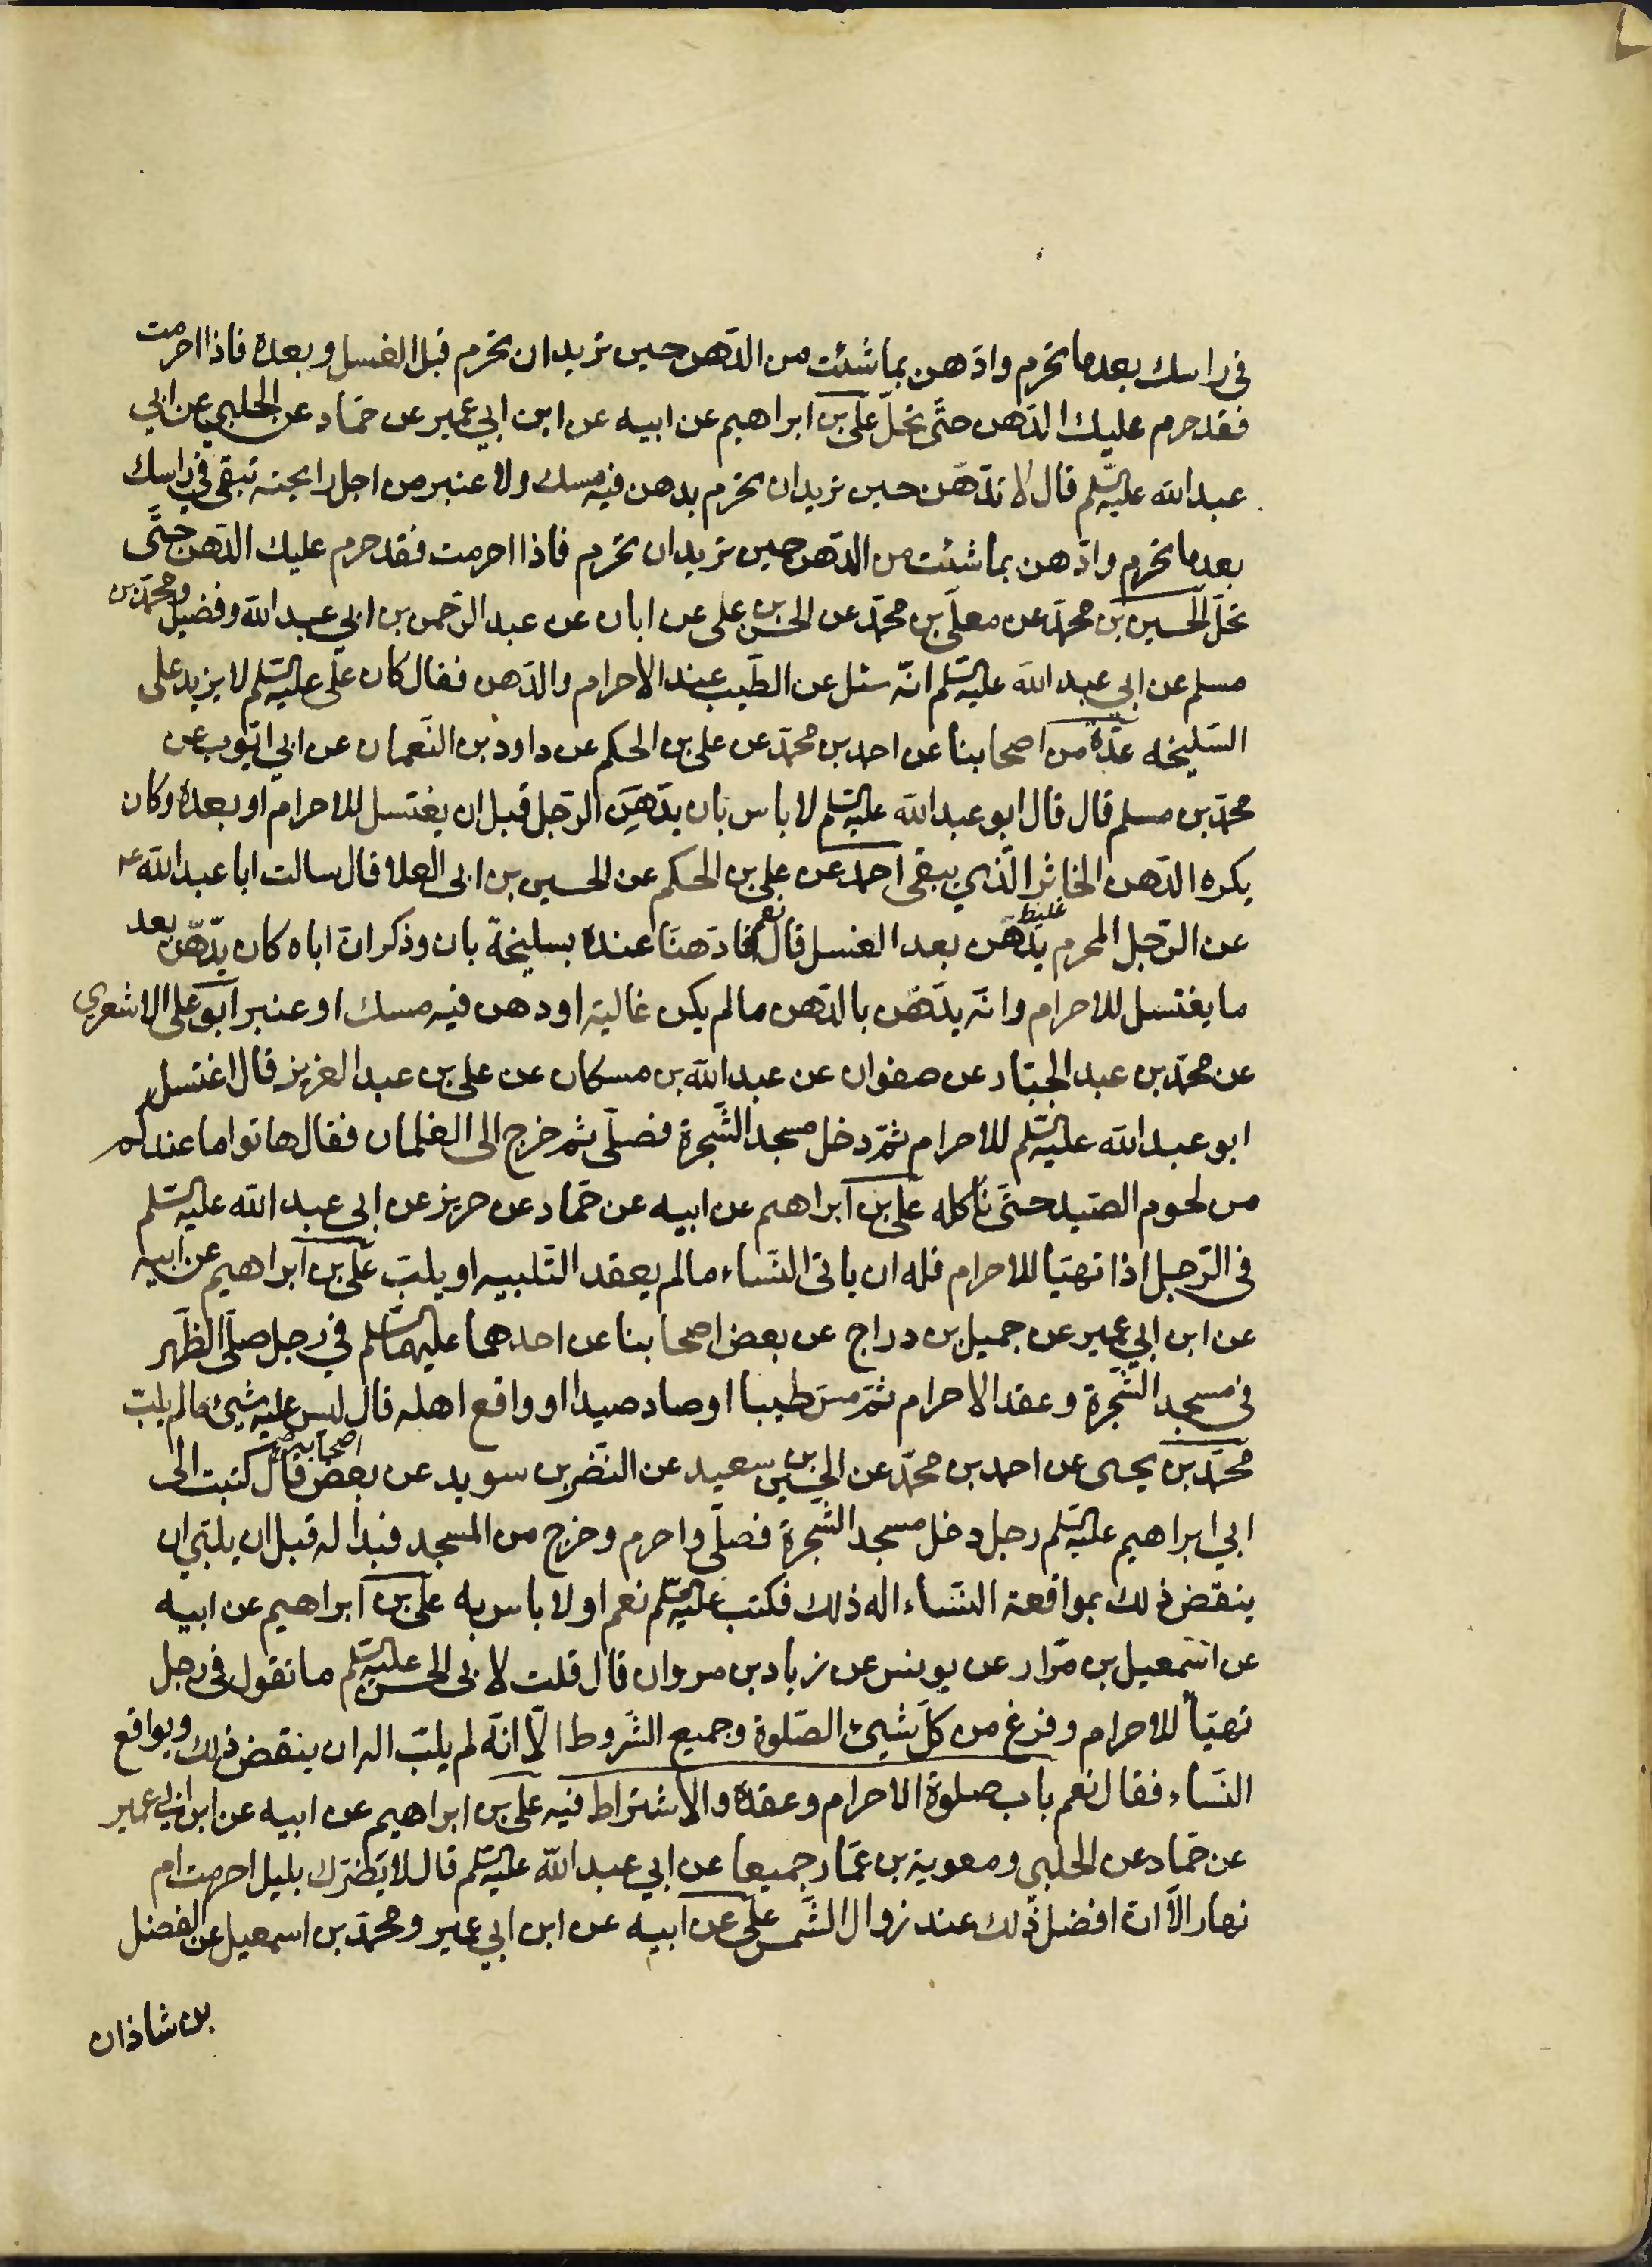 فى راسك بعد ما تحرم وادّهن بما شئت من الدّهن حين تريد ان تحرم قبل الغسل وبعده فاذا احرمت
فقد حرم عليك الدّهن حتّى تحلّ علىّ بن ابراهيم عن ابيه عن ابن ابي عمير عن حمّاد عن الحلبي عن ابي
عبد الله عليه السّلم قال لا تدّهن حين تريد ان تحرم بدهن فيه مسك ولا عنبر من اجل رايحته تبقى في راسك
بعد ما تحرم وادّهن بما شئت من الدّهن حين تريد ان تحرم فاذا احرمت فقد حرم عليك الدّهن حتّى
تحلّ الحسين بن محمّد عن معلّى بن محمّد عن الحسن بن على عن ابان عن عبد الرّحمن بن ابي عبد الله وفضيل ومحمّد بن
مسلم عن ابي عبد الله عليه السّلم انّه سئل عن الطّيب عند الاحرام والدّهن فقال كان علّى عليه السّلم لا يزيد على
السّليخه عدّة من اصحابنا عن احمد بن محمّد عن على بن الحكم عن داود بن النّعمان عن ابي ايّوب عن
محمّد بن مسلم قال قال ابو عبد الله عليه السّلم لا باس بان يدّهن الرّجل قبل ان يغتسل للاحرام او بعده وكان
يكره الدّهن الخاثر الّذي يبقى احمد عن على بن الحكم عن الحسين بن ابى العلا قال سالت ابا عبد الله ع
غليظ
عن الرّجل المحرم يدّهن بعد الغسل قال نعم فادّهنّا عنده بسليخة بان وذكر انّ اباه كان يدّهن بعد
ما يغتسل للاحرام وانّه يدّهن بالدّهن ما لم يكن غالية او دهن فيه مسك او عنبر ابو على الاشعري
عن محمّد بن عبد الجبّار عن صفوان عن عبد الله بن مسكان عن على بن عبد العزيز قال اغتسل
ابو عبد الله عليه السّلم للاحرام ثمّ دخل مسجد الشّجرة فصلّى ثم خرج الى الغلمان فقال هاتوا ما عندكم
من لحوم الصّيد حتّى ناكله على بن ابراهيم عن ابيه عن حمّاد عن حريز عن ابي عبد الله عليه السّلم
فى الرّجل اذا تهيّا للاحرام فله ان ياتى النّساء ما لم يعقد التّلبيه او يلبّ علّى بن ابراهيم عن ابيه
عن ابن ابي عمير عن جميل بن دراج عن بعض اصحابنا عن احدهما عليهما السّلم في رجل صلّى الظّهر
في مسجد الشّجرة وعقد الاحرام ثمّ مسّ طيبا او صاد صيدا او واقع اهله قال ليس عليه شيئ ما لم يلبّ
محمّد بن يحيى عن احمد بن محمّد عن الحسين بن سعيد عن النّضر بن سويد عن بعض اصحابه قال كتبت الى
ابي ابراهيم عليه السّلم رجل دخل مسجد الشّجرة فصلّى واحرم وخرج من المسجد فبدا له قبل ان يلبّي ان
ينقض ذلك بمواقعة النّساء اله ذلك فكتب عليه السّلم نعم او لا باس به على بن ابراهيم عن ابيه
عن اسمعيل بن مرّار عن يونس عن زياد بن مروان قال قلت لابى الحسن عليه السّلم ما تقول فى رجل
تهيّأ للاحرام وفرغ من كلّ شيئ الصّلوة وجميع الشّروط الّا انّه لم يلبّ اله ان ينقض ذلك ويواقع
النّساء فقال نعم باب صلوة الاحرام وعقده والاشتراط فيه على بن ابراهيم عن ابيه عن ابن ابي عمير
عن حمّاد عن الحلبي ومعوية بن عمّار جميعا عن ابي عبد الله عليه السّلم قال لا يضرّك بليل احرمت ام
نهار الّا انّ افضل ذلك عند زوال الشّمس علّى عن ابيه عن ابن ابي عمير ومحمّد بن اسمعيل عن الفضل
بن شاذان